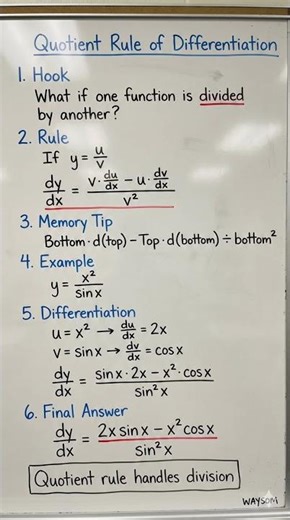 Quotient Rule of Differentiation
1. Hook
What if one function is divided
by another?
2. Rule
If y = u/v
dy/dx = (v · du/dx − u · dv/dx) / v²
3. Memory Tip
Bottom · d(top) − Top · d(bottom) ÷ bottom²
4. Example
y = x²/sin x
5. Differentiation
u = x² → du/dx = 2x
v = sin x → dv/dx = cos x
dy/dx = (sin x · 2x − x² · cos x) / sin² x
6. Final Answer
dy/dx = (2x sin x − x² cos x) / sin² x
Quotient rule handles division
WAYSOM